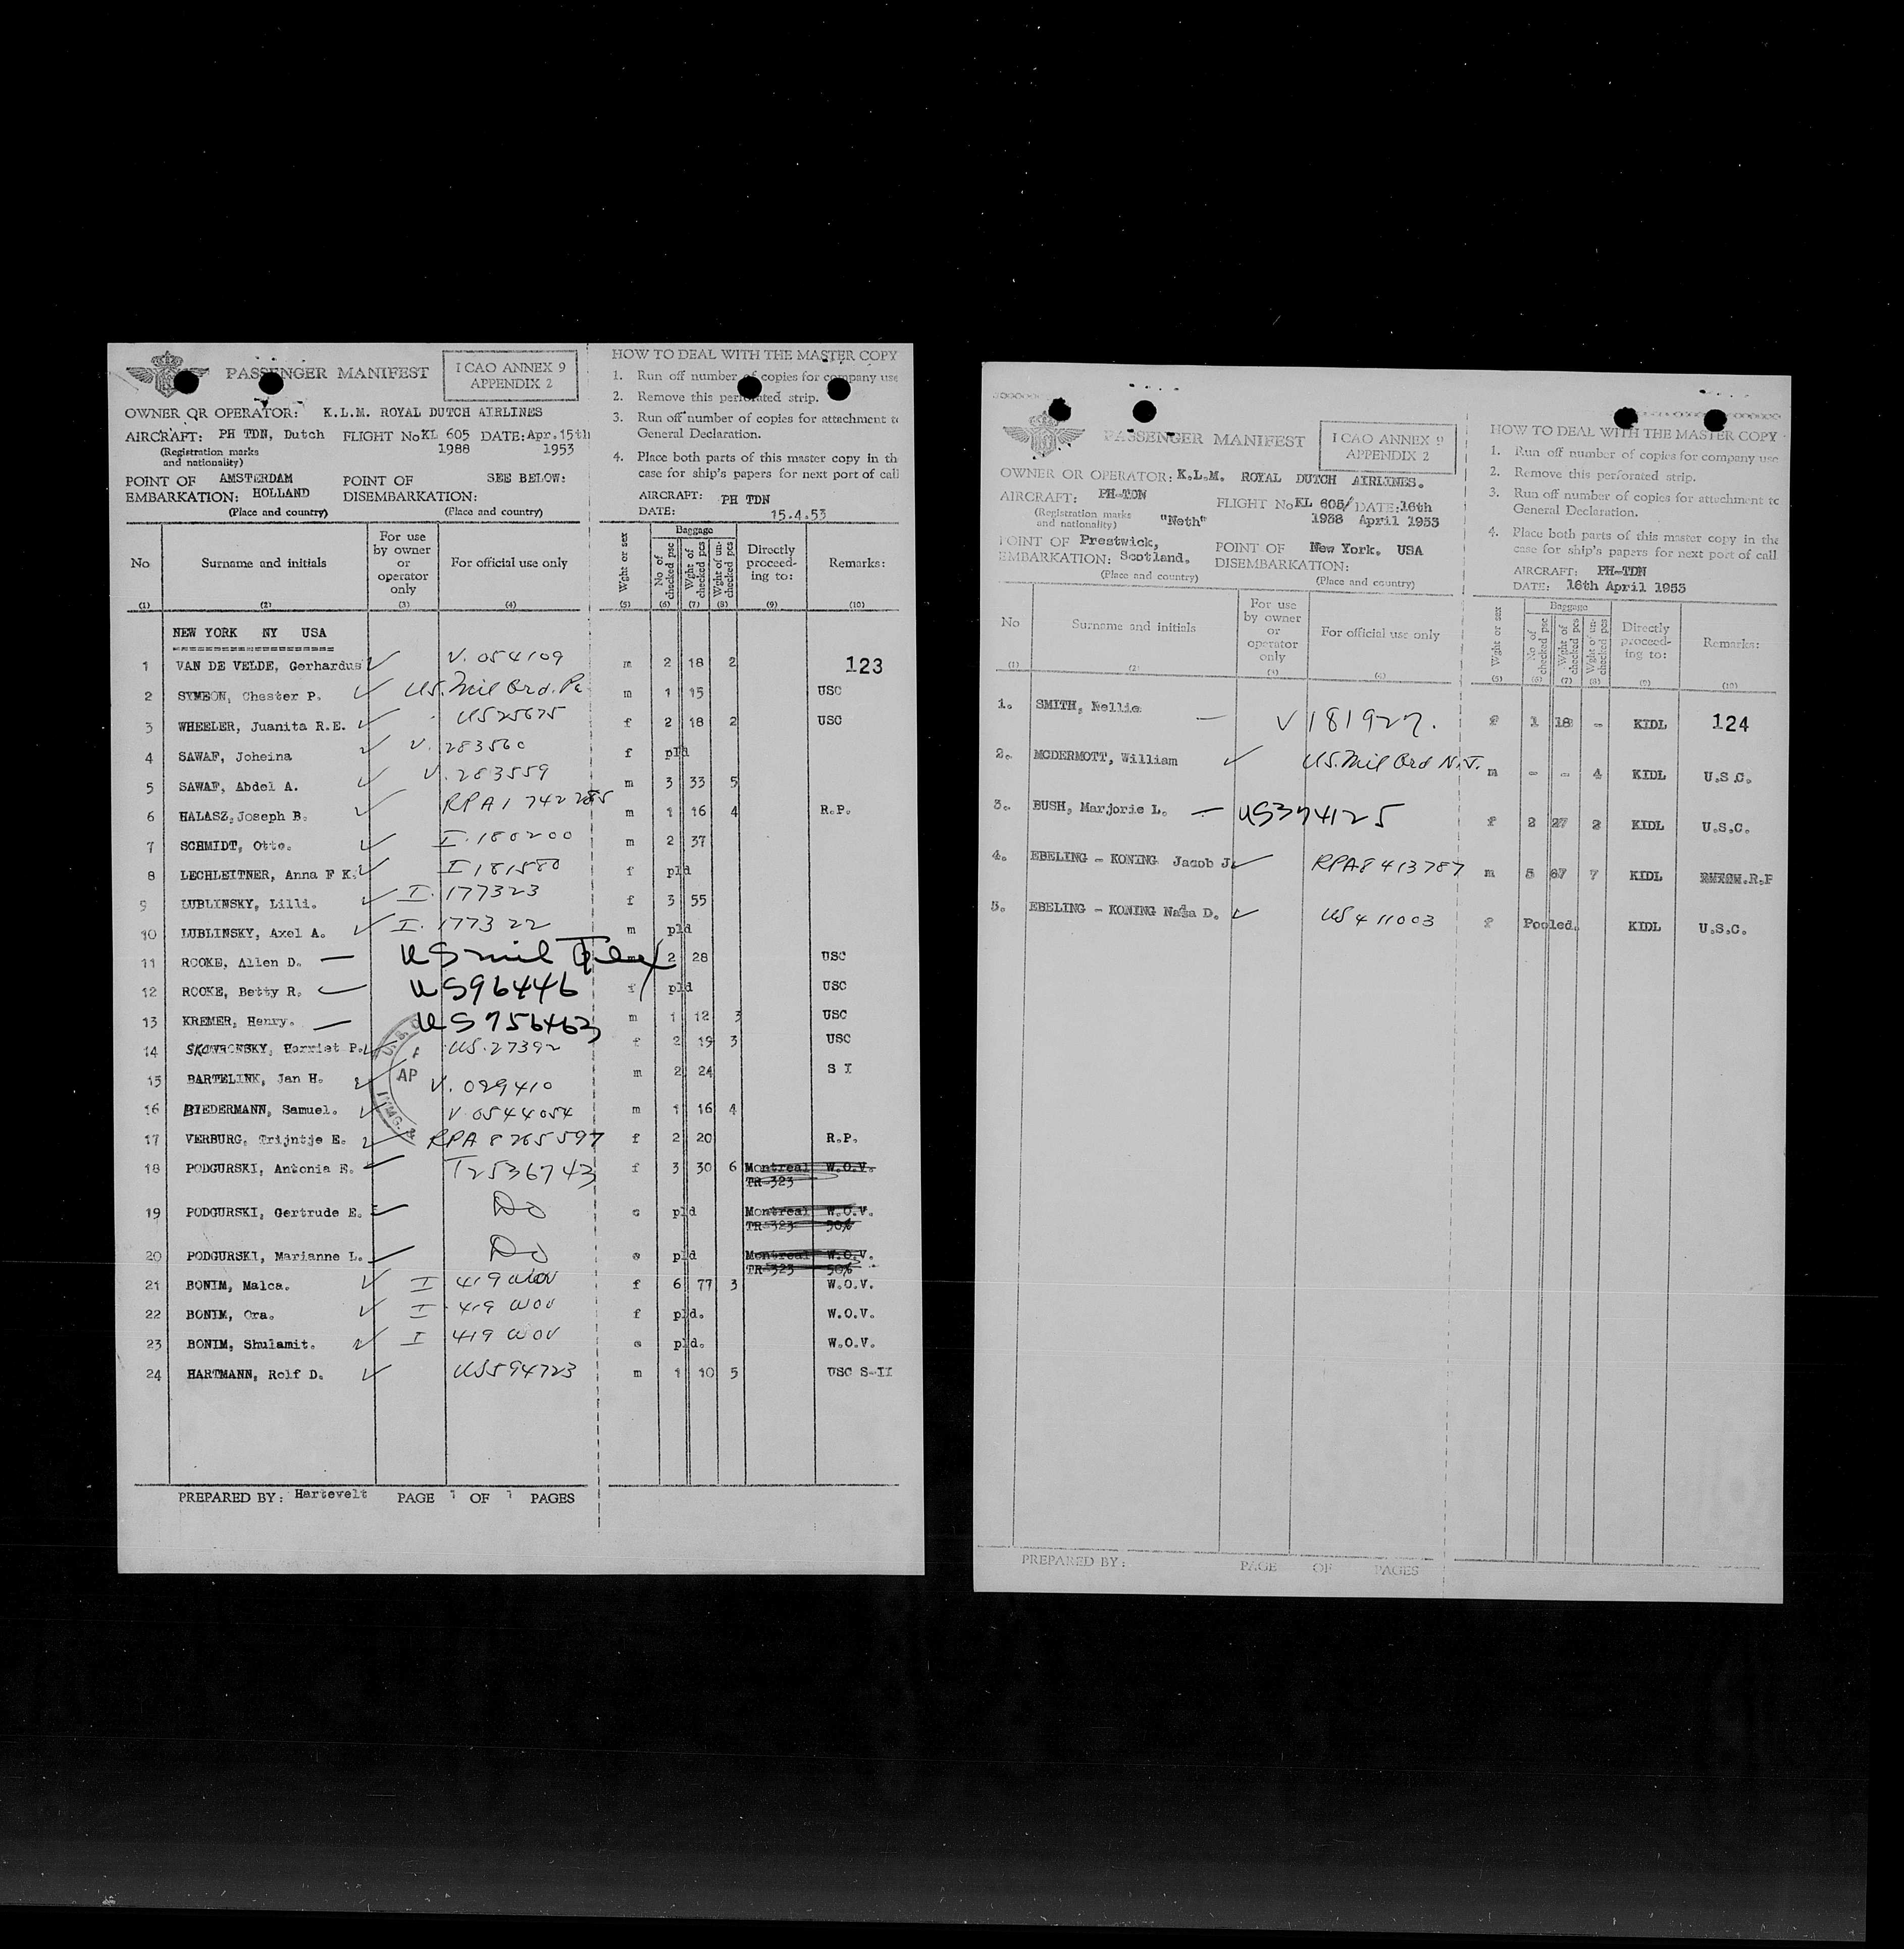 PASSENGER MANIFEST
I CAO ANNEX 9
APPENDIX 2
OWNER OR OPERATOR: K.L.M. ROYAL DUTCH AIRLINES
AIRCRAFT: PH TDN, Dutch FLIGHT No KL 605 DATE: Apr. 15th
(Registration marks 1988 1953
and nationality)
POINT OF AMSTERDAM POINT OF SEE BELOW:
EMBARKATION: HOLLAND DISEMBARKATION:
(Place and country) (Place and country)
HOW TO DEAL WITH THE MASTER COPY
1. Run off number of copies for company use
2. Remove this perforated strip.
3. Run off number of copies for attachment to
General Declaration.
4. Place both parts of this master copy in th
case for ship's papers for next port of call
AIRCRAFT: PH TDN
DATE: 15.4.53
No Surname and initials For use by owner or operator only For official use only Wght or sex Baggage No of checked pse Wght of checked pcs Wght of un-checked pcs Directly proceed-ing to: Remarks:
(1) (2) (3) (4) (5) (6) (7) (8) (9) (10)
NEW YORK NY USA
1 VAN DE VELDE, Gerhardus V. 054109 m 2 18 2 123
2 SYMEON, Chester P. US. Mil Ord. Pa m 1 15 USC
3 WHEELER, Juanita R.E. US25675 f 2 18 2 USC
4 SAWAF, Joheina V. 283560 f pld
5 SAWAF, Abdel A. V. 283559 m 3 33 5
6 HALASZ, Joseph B. RPA1 742785 m 1 16 4 R.P.
7 SCHMIDT, Otto. I. 180200 m 2 37
8 LECHLEITNER, Anna F K. I 181580 f pld
9 LUBLINSKY, Lilli. I. 177323 f 3 55
10 LUBLINSKY, Axel A. I. 177322 m pld
11 ROOKE, Allen D. US mil 2 28 USC
12 ROOKE, Betty R. US96446 f pld USC
13 KREMER, Henry. US756463 m 1 12 3 USC
14 SKOWRONSKY, Harriet P. US. 27392 f 2 19 3 USC
15 BARTELINK, Jan H. V. 029410 m 2 24 S I
16 BIEDERMANN, Samuel. V. 0544054 m 1 16 4
17 VERBURG, Trijntje E. RPA 8265597 f 2 20 R.P.
18 PODGURSKI, Antonia E. T2536743 f 3 30 6 Montreal W.O.V.
TR-323
19 PODGURSKI, Gertrude E. Do c pld Montreal W.O.V.
TR-323 50%
20 PODGURSKI, Marianne L. Do c pld Montreal W.O.V.
TR-323 50%
21 BONIM, Malca. I 419 WOV f 6 77 3 W.O.V.
22 BONIM, Ora. I 419 WOV f pld. W.O.V.
23 BONIM, Shulamit. I 419 WOV c pld. W.O.V.
24 HARTMANN, Rolf D. US594723 m 1 10 5 USC S-II
PREPARED BY: Hartevelt PAGE 1 OF 1 PAGES
PASSENGER MANIFEST
I CAO ANNEX 9
APPENDIX 2
OWNER OR OPERATOR: K.L.M. ROYAL DUTCH AIRLINES.
AIRCRAFT: PH-TDN FLIGHT No KL 605/ DATE: 16th
(Registration marks "Neth" 1988 April 1953
and nationality)
POINT OF Prestwick, POINT OF New York. USA
EMBARKATION: Scotland. DISEMBARKATION:
(Place and country) (Place and country)
HOW TO DEAL WITH THE MASTER COPY
1. Run off number of copies for company use
2. Remove this perforated strip.
3. Run off number of copies for attachment to
General Declaration.
4. Place both parts of this master copy in the
case for ship's papers for next port of call
AIRCRAFT: PH-TDN
DATE: 16th April 1953
No Surname and initials For use by owner or operator only For official use only Wght or sex Baggage No of checked pse Wght of checked pcs Wght of un-checked pcs Directly proceed-ing to: Remarks:
(1) (2) (3) (4) (5) (6) (7) (8) (9) (10)
1. SMITH, Nellie V 181927. f 1 18 - KIDL 124
2. MCDERMOTT, William US. Mil Ord N.J. m - - 4 KIDL U.S.C.
3. BUSH, Marjorie L. US374125 f 2 27 2 KIDL U.S.C.
4. EBELING - KONING Jacob J. RPA8413787 m 5 67 7 KIDL R.P
5. EBELING - KONING Nasa D. US411003 f Pooled. KIDL U.S.C.
PREPARED BY: PAGE OF PAGES